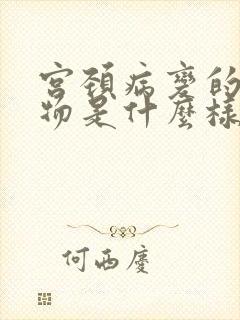 宮頸病變的
物是什麼樣
何西慶